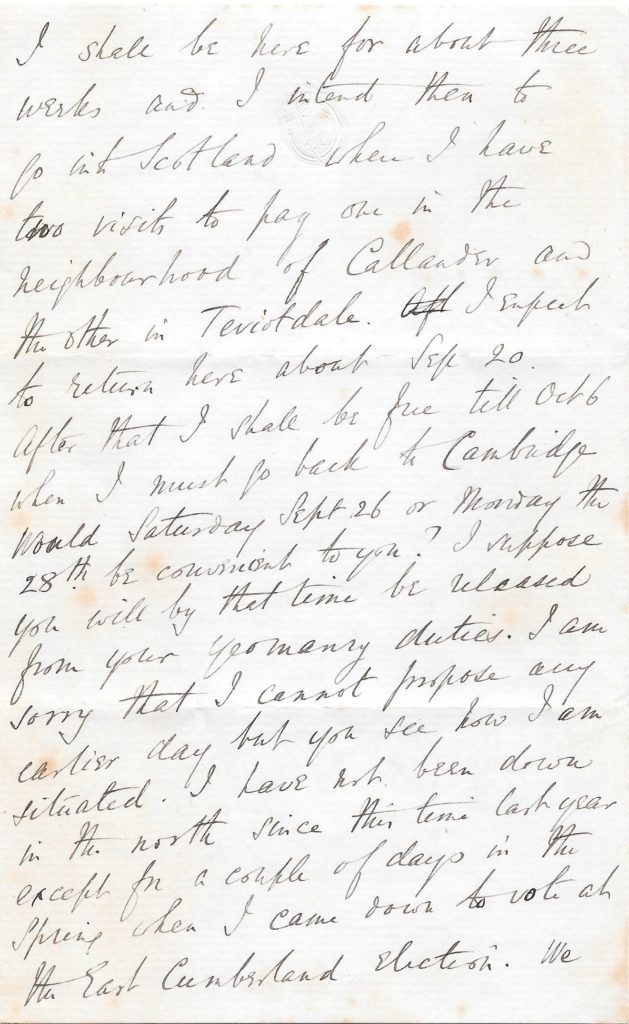 I shall be here for about three
weeks and I intend then to
go into Scotland when I have
two visits to pay one in the
neighbourhood of Callander and
the other in Teviotdale. Aft I expect
to return here about Sep 20.
After that I shall be free till Oct 6
when I must go back to Cambridge
Would Saturday Sept 26 or Monday the
28th be convenient to you? I suppose
you will by that time be released
from your yeomanry duties. I am
sorry that I cannot propose any
earlier day but you see how I am
situated. I have not been down
in the north since this time last year
except for a couple of days in the
Spring when I came down to vote at
the East Cumberland Election. We